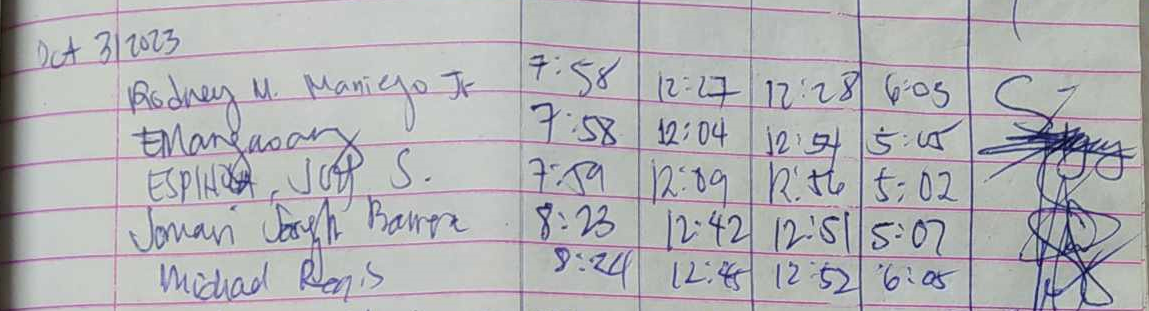 Oct 3/2023
Rodney M. Maniego Jr 7:58 12:27 12:28 6:03
7:58 12:04 12:54 5:05
ESPINOSA, JOY S. 7:59 12:09 12:56 5:02
Jomari Joseph Barrera 8:23 12:42 12:51 5:07
Michael Regis 8:24 12:45 12:52 6:05